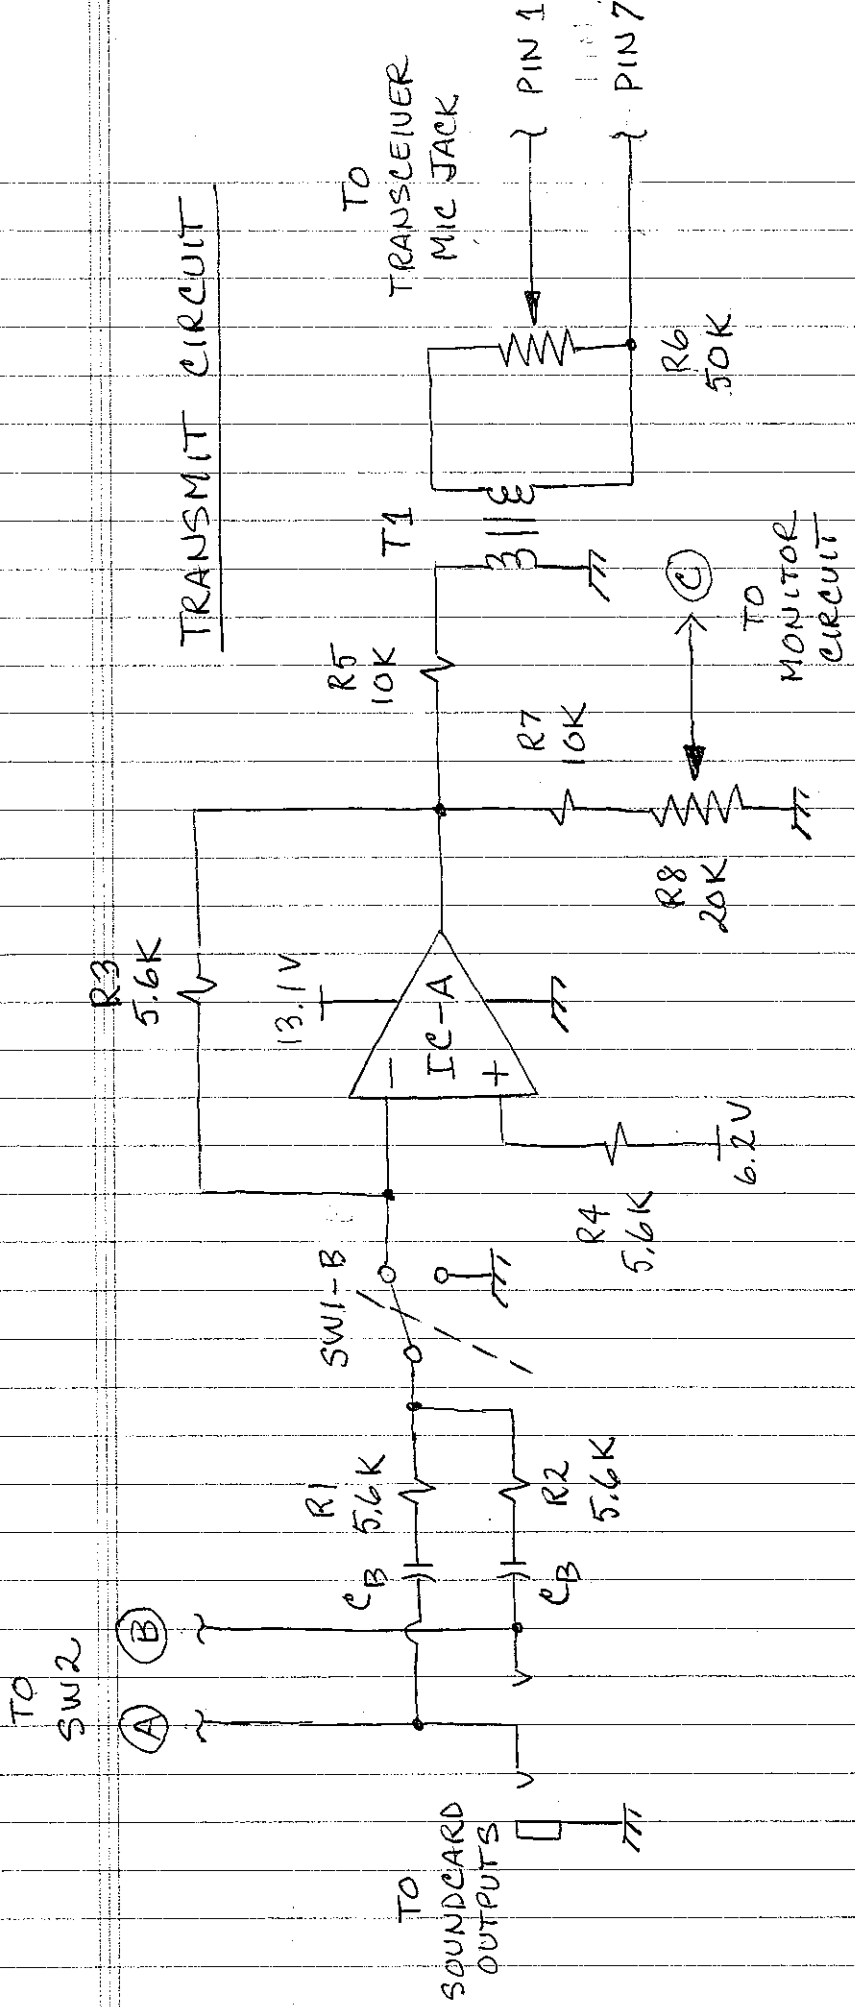 TRANSMIT CIRCUIT
TO
SW2
A
B
TO
SOUNDCARD
OUTPUTS
CB
R1
5.6K
CB
R2
5.6K
SW1-B
R3
5.6K
13.1V
-
IC-A
+
R4
5.6K
6.2V
R5
10K
R7
10K
R8
20K
C
TO
MONITOR
CIRCUIT
T1
R6
50K
TO
TRANSCEIVER
MIC JACK
PIN 1
PIN 7